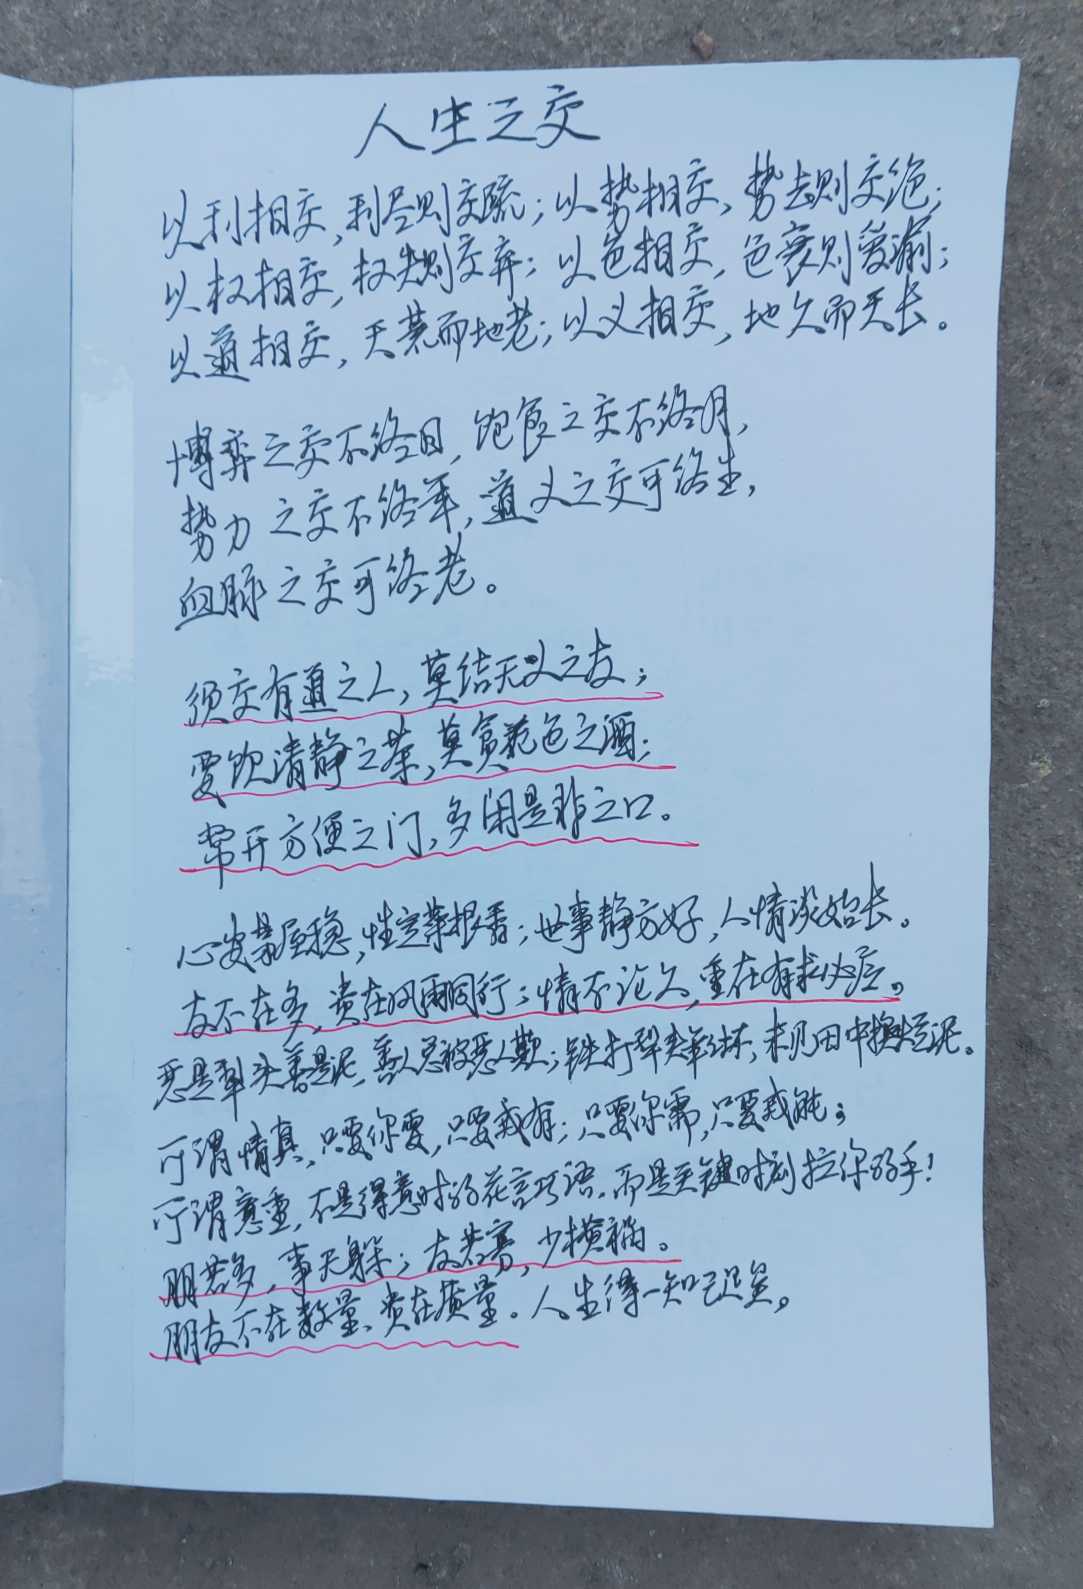 人生之交
以利相交，利尽则交疏；以势相交，势去则交绝；
以权相交，权失则交弃；以色相交，色衰则爱渝；
以道相交，天荒而地老；以义相交，地久而天长。
博弈之交不终日，饱食之交不终月，
势力之交不终年，道义之交可终生，
血脉之交可终老。
须交有道之人，莫结无义之友；
要饮清静之茶，莫贪花色之酒；
常开方便之门，多闭是非之口。
心安茅屋稳，性定菜根香；世事静方好，人情淡始长。
友不在多，贵在风雨同行；情不论久，重在有求必应。
恶是犁头善是泥，善人总被恶人欺；铁打犁头年年坏，未见田中换烂泥。
可谓情真，只要你要，只要我有；只要你需，只要我能；
可谓意重，不是得意时的花言巧语，而是关键时刻拉你的手！
朋若多，事无躲；友若寡，少横祸。
朋友不在数量、贵在质量。人生得一知己足矣。